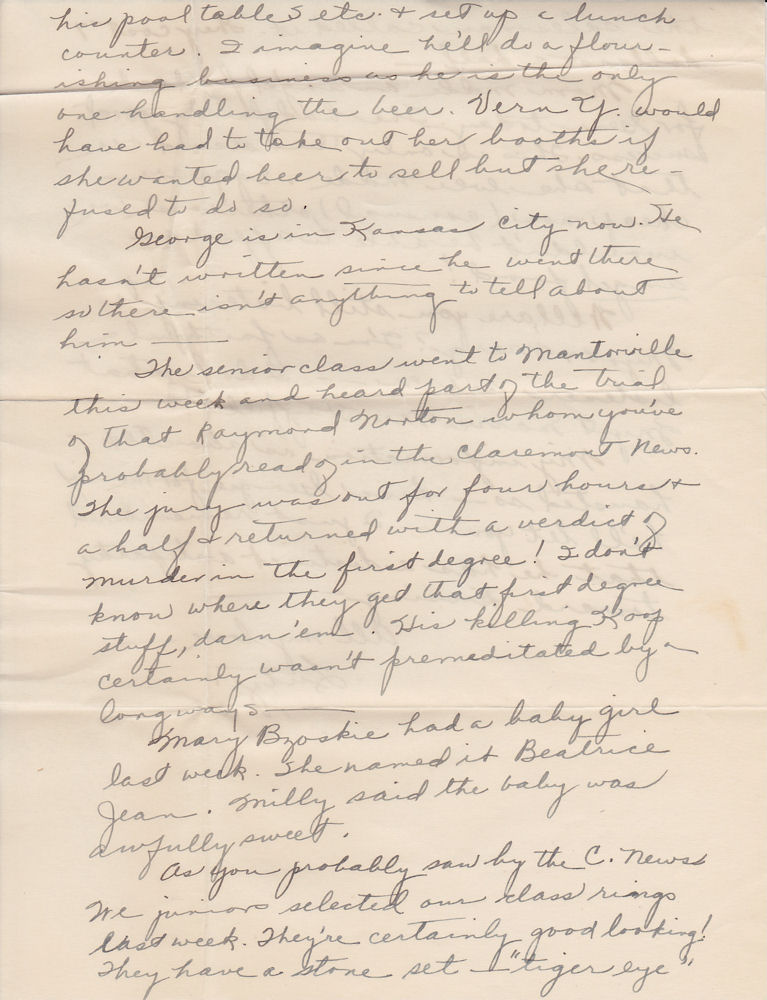 his pool tables etc. & set up a lunch
counter. I imagine he'll do a flour-
ishing business as he is the only
one handling the beer. Vern Y. would
have had to take out her booths if
she wanted beer to sell but she re-
fused to do so.
George is in Kansas City now. He
hasn't written since he went there
so there isn't anything to tell about
him ——
The senior class went to Mantorville
this week and heard part of the trial
of that Raymond Norton whom you've
probably read of in the Claremont News.
The jury was out for four hours &
a half & returned with a verdict of
murder in the first degree! I don't
know where they get that first degree
stuff, darn 'em. His killing Koop
certainly wasn't premeditated by a
long ways ——
Mary Bzoskie had a baby girl
last week. She named it Beatrice
Jean. Milly said the baby was
awfully sweet.
As you probably saw by the C. News
We juniors selected our class rings
last week. They're certainly good looking!
They have a stone set – "tiger eye"